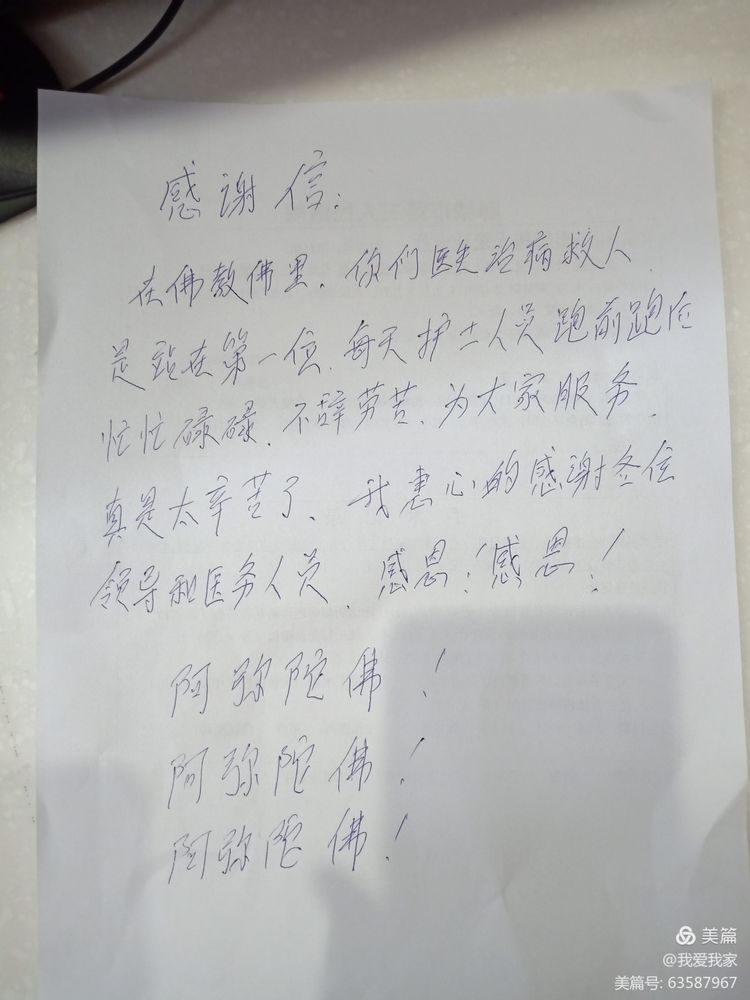 感谢信：
在佛教佛里，你们医生治病救人，
是站在第一位，每天护士人员跑前跑后
忙忙碌碌，不辞劳苦，为大家服务，
真是太辛苦了，我衷心的感谢各位
领导和医务人员，感恩！感恩！
阿弥陀佛！
阿弥陀佛！
阿弥陀佛！
美篇
@我爱我家
美篇号: 63587967